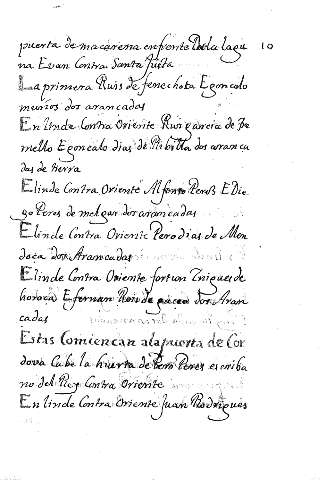 puerta de macarena en frente De la lagu 10
na E van Contra Santa Justa
La primera Ruis de fenechota E gonçalo
muñios dos arancadas
En linde Contra Oriente Rui garcia de Tre
mello E goncalo dias de dos aranca
das de tierra
E linde Contra Oriente Alfonso Peres E Die
go Peres de melgar dos arancadas
E linde Contra Oriente Pero dias de Men
doca dos Arancadas
E linde Contra Oriente fortun Inigues de
horoca E fernan Rois de dos Aran
cadas
Estas Comiencan a la puerta de Cor
dova Cabe la huerta de Peres escriba
no del Rey Contra Oriente
En linde Contra Oriente Juan Rodrigues